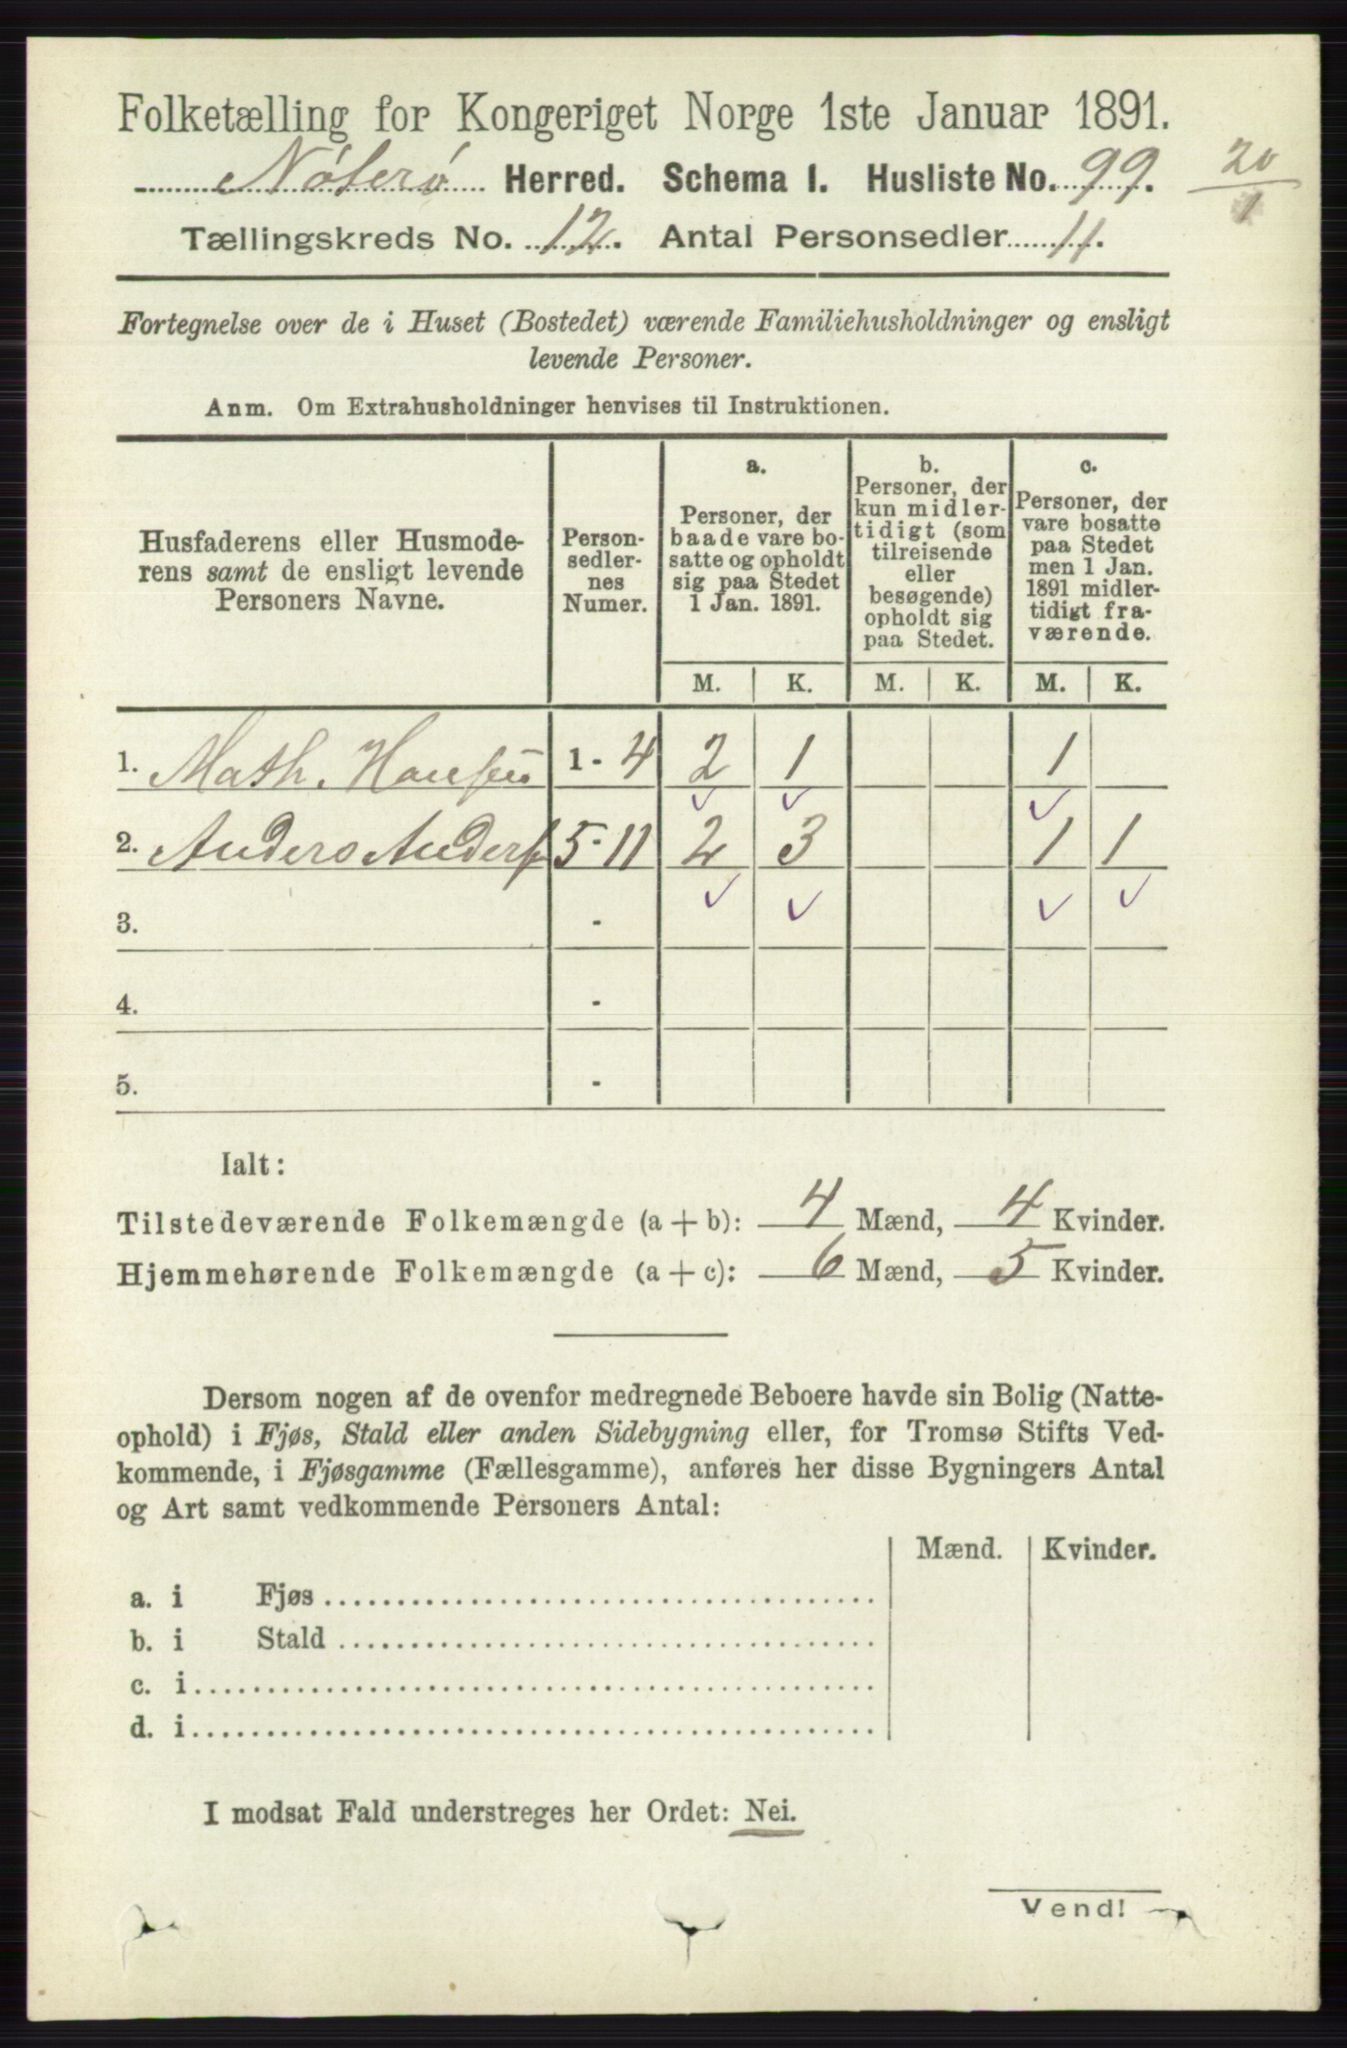 Folketælling for Kongeriget Norge 1ste Januar 1891.
Nøterø Herred. Schema I. Husliste No. 99.
20
1
Tællingskreds No. 12. Antal Personsedler 11.
Fortegnelse over de i Huset (Bostedet) værende Familiehusholdninger og ensligt
levende Personer.
Anm. Om Extrahusholdninger henvises til Instruktionen.
Husfaderens eller Husmode-
rens samt de ensligt levende
Personers Navne.
Person-
sedler-
nes
Numer.
a.
Personer, der
baade vare bo-
satte og opholdt
sig paa Stedet
1 Jan. 1891.
b.
Personer, der
kun midler-
tidigt (som
tilreisende
eller
besøgende)
opholdt sig
paa Stedet.
c.
Personer, der
vare bosatte
paa Stedet
men 1 Jan.
1891 midler-
tidigt fra-
værende.
M. K. M. K. M. K.
1. Math. Hansen 1 - 4 2 1 1
2. Anders Anders 5 - 11 2 3 1 1
3. -
4. -
5. -
Ialt:
Tilstedeværende Folkemængde (a + b): 4 Mænd, 4 Kvinder.
Hjemmehørende Folkemængde (a + c): 6 Mænd, 5 Kvinder.
Dersom nogen af de ovenfor medregnede Beboere havde sin Bolig (Natte-
ophold) i Fjøs, Stald eller anden Sidebygning eller, for Tromsø Stifts Ved-
kommende, i Fjøsgamme (Fællesgamme), anføres her disse Bygningers Antal
og Art samt vedkommende Personers Antal:
Mænd. Kvinder.
a. i Fjøs
b. i Stald
c. i
d. i
I modsat Fald understreges her Ordet: Nei.
Vend!